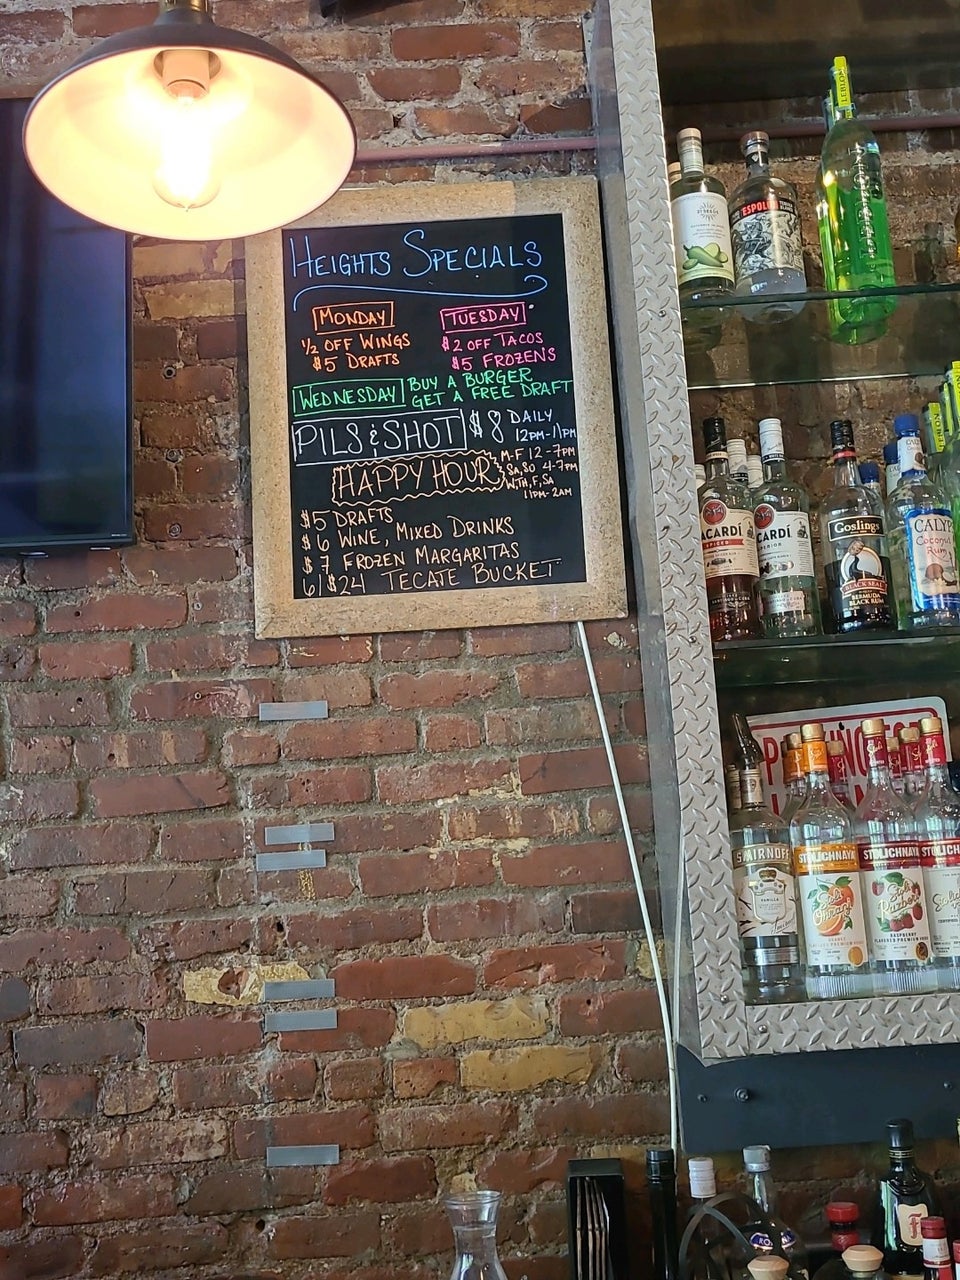 HEIGHTS SPECIALS
MONDAY
1/2 OFF WINGS
$5 DRAFTS
TUESDAY
$2 OFF TACOS
$5 FROZENS
WEDNESDAY
BUY A BURGER
GET A FREE DRAFT
PILS & SHOT
$8
DAILY
12PM-11PM
HAPPY HOUR
M-F 12-7PM
SA,SU 4-7PM
W,TH,F,SA
11PM-2AM
$5 DRAFTS
$6 WINE, MIXED DRINKS
$7 FROZEN MARGARITAS
6/$24 TECATE BUCKET
LEBLON
ESPOLO
ACARDÍ
SPICED
CARDÍ
Goslings
BLACK SEAL
BERMUDA
BLACK RUM
CALYP
Coconut
Rum
SMIRNOFF
VANILLA
STOLICHNAYA
Stoli
Ohranj
ORANGE
STOLICHNAYA
Stoli
Razberi
RASPBERRY
FLAVORED PREMIUM VODKA
STOLICH